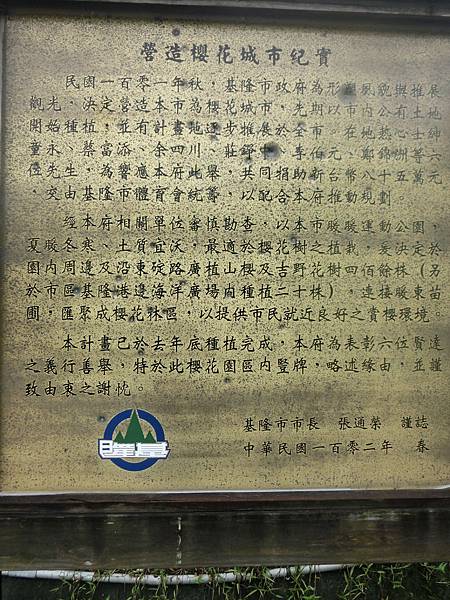 營造櫻花城市紀實
民國一百零一年秋，基隆市政府為形塑風貌與推展
觀光，決定營造本市為櫻花城市，先期以市內公有土地
開始種植，並有計畫逐步推展於全市。在地熱心士紳
童永、蔡富添、余四川、莊評中、李伯元、鄭錦洲等六
位先生，為響應本府此舉，共同捐助新台幣八十五萬元
，交由基隆市體育會統籌，以配合本府推動規劃。
經本府相關單位審慎勘查，以本市暖暖運動公園，
夏暖冬寒、土質宜沃，最適於櫻花樹之植栽，爰決定於
園內周邊及沿東碇路廣植山櫻及吉野花樹四佰餘株（另
於市區基隆港邊海洋廣場內種植二十株），連接暖東苗
圃，匯聚成櫻花林區，以提供市民就近良好之賞櫻環境。
本計畫已於去年底種植完成，本府為表彰六位賢達
之義行善舉，特於此櫻花園區內豎牌，略述緣由，並謹
致由衷之謝忱。
基隆市市長 張通榮 謹誌
中華民國一百零二年 春